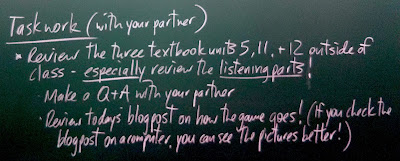 Taskwork (with your partner)
* Review the three textbook units 5, 11, + 12 outside of
class - especially review the listening parts!
· Make a Q+A with your partner
· Review today's blogpost on how the game goes! (If you check the
blogpost on a computer, you can see the pictures better!)